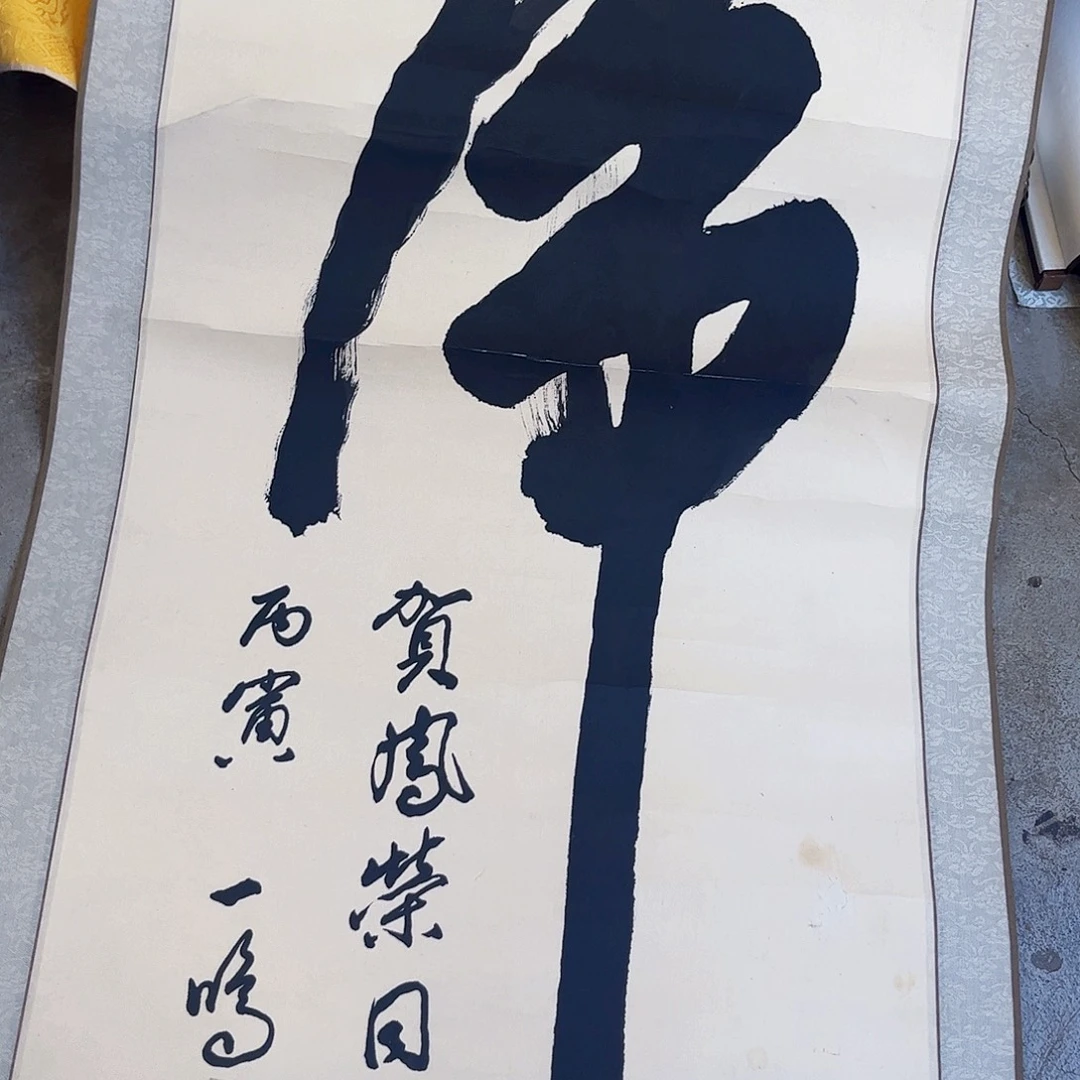 賀鳳榮同
丙寅 一鳴